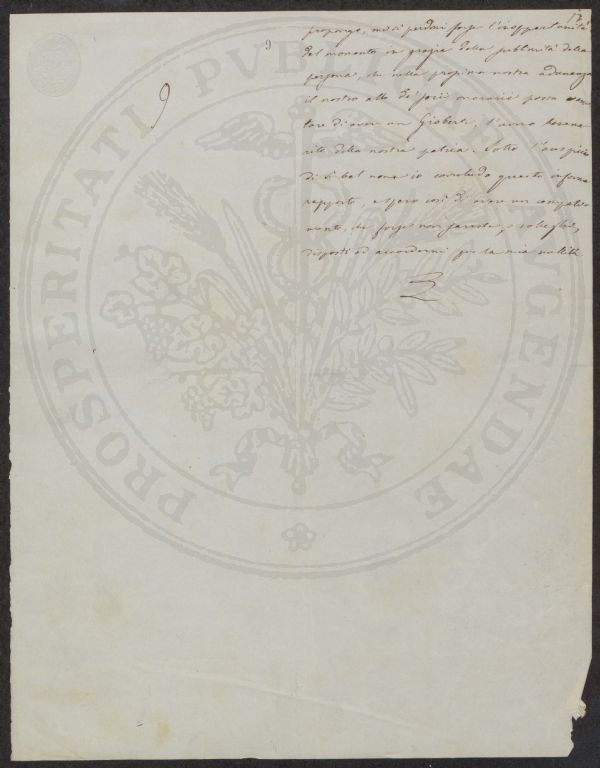 13
9
9
propongo, mi si perdoni forse l'inopportunità
del momento in grazia della pubblicità della
persona, che nella prossima nostra adunanza
il nostro albo de' socii onorarii possa van-
tare di avere un Gioberti, l'uomo beneme-
rito della nostra patria. Sotto l'auspicio
di sì bel nome io concludo questo informe
rapporto, e spero così di avere un compati-
mento, che forse non
disposti ad accordarmi per la mia nullità
PROSPERITATI PVBLICAE AVGENDAE